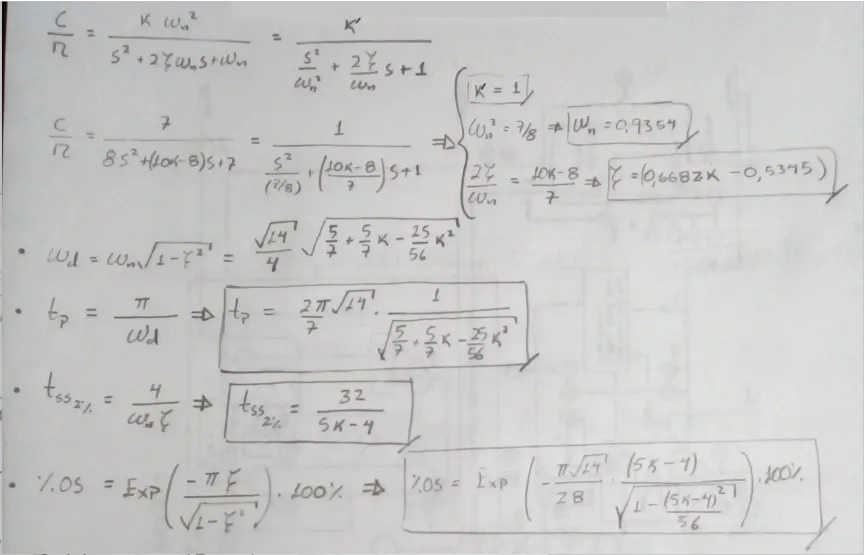 C/R = K ωn² / (S² + 2ζωnS + ωn) = K' / (S²/ωn² + 2ζ/ωn S + 1)
K = 1
C/R = 7 / (8S² + (10K-8)S + 7) = 1 / (S²/(7/8) + ((10K-8)/7)S + 1) ⇒ { ωn² = 7/8 ⇒ ωn = 0,9354
2ζ/ωn = (10K-8)/7 ⇒ ζ = (0,6682K - 0,5345)
• ωd = ωn√(1-ζ²) = √14/4 √(5/7 + 5/7 K - 25/56 K²)
• tp = π/ωd ⇒ tp = 2π√14/7 · 1/√(5/7 + 5/7 K - 25/56 K²)
• tss2% = 4/(ωn ζ) ⇒ tss2% = 32/(5K-4)
• %OS = Exp(-πζ/√(1-ζ²)) · 100% ⇒ %OS = Exp(-π√14/28 · (5K-4)/√(1 - (5K-4)²/56)) · 100%